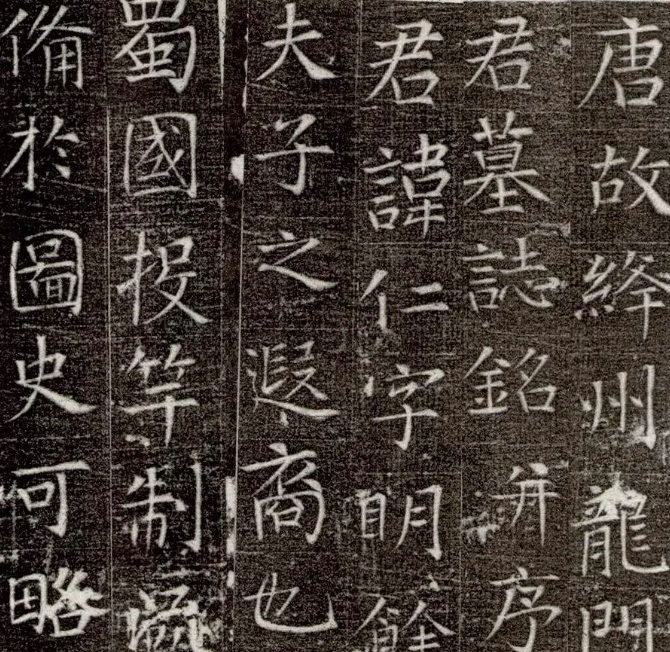 唐故絳州龍門
君墓誌銘并序
君諱仁字眀
夫子之遐商也
蜀國投竿制
俻於圖史可略